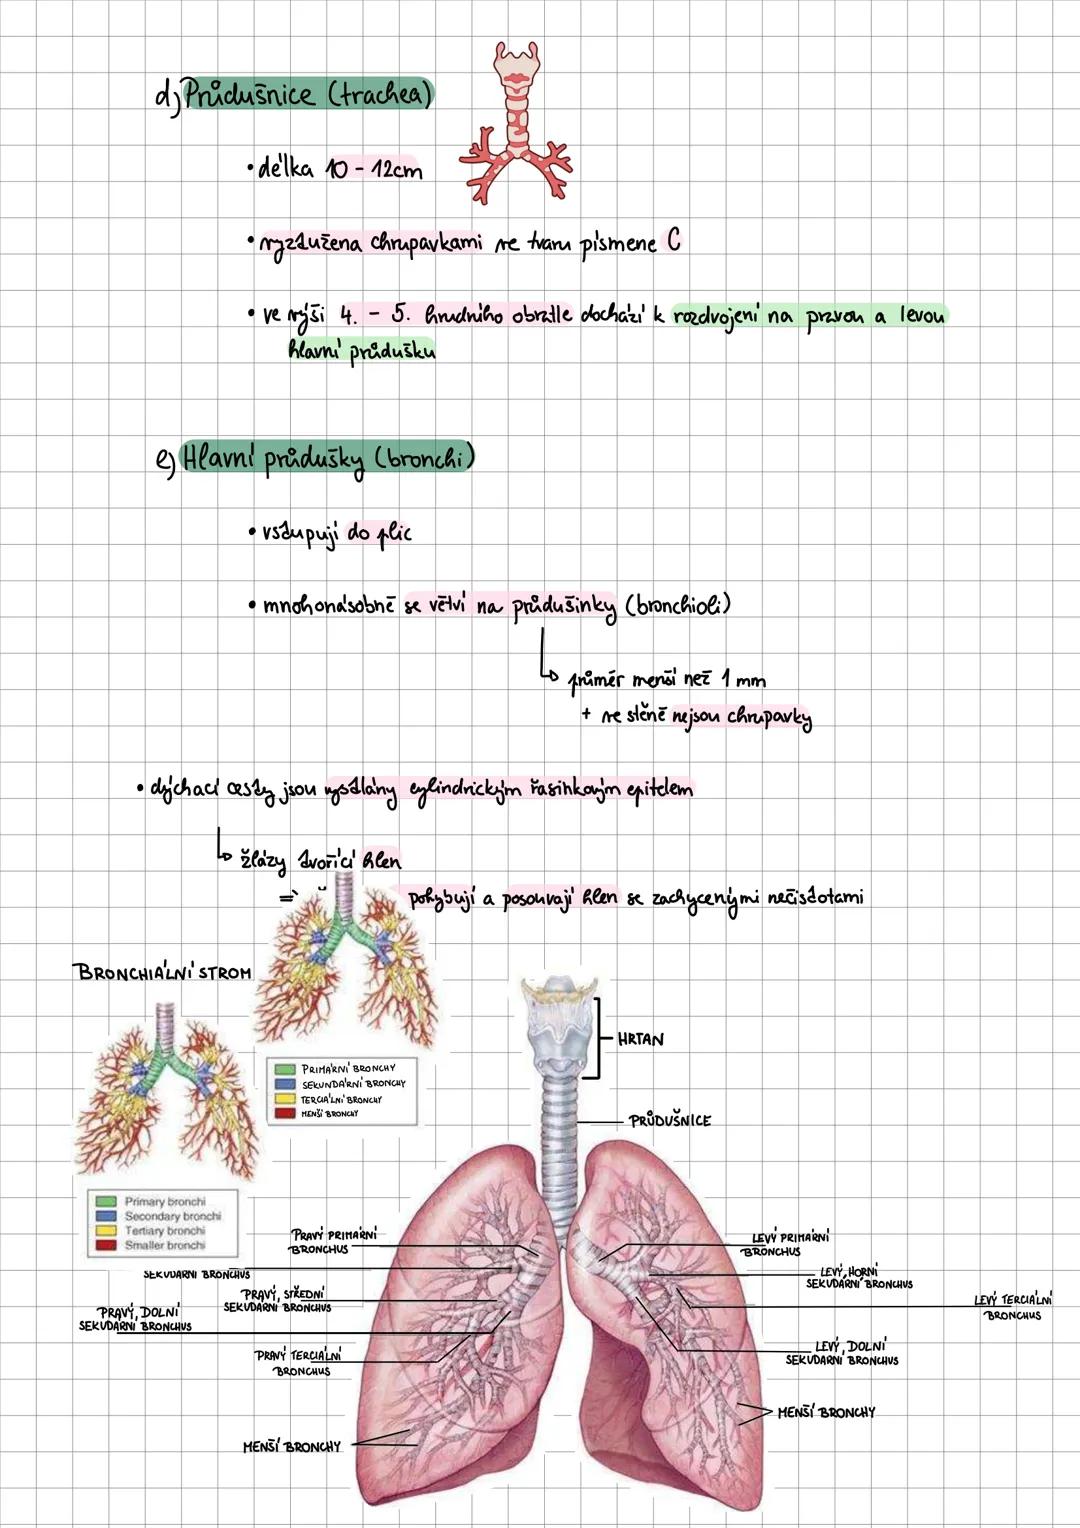 d) Průdušnice (trachea)
• délka 10 - 12cm
• vyztužena chrupavkami ve tvaru písmene C
• ve výši 4. - 5. hrudního obratle dochází k rozdvojení na pravou a levou
hlavní průdušku
e) Hlavní průdušky (bronchi)
• vstupují do plic
• mnohonásobně se větví na průdušinky (bronchioli)
↳ průměr menší než 1 mm
+ ve stěně nejsou chrupavky
• dýchací cesty jsou vystlány cylindrickým řasinkovým epitelem
↳ žlázy tvořící hlen
⇒ pohybují a posouvají hlen se zachycenými nečistotami
BRONCHIÁLNÍ STROM
PRIMÁRNÍ BRONCHY
SEKUNDÁRNÍ BRONCHY
TERCIÁLNÍ BRONCHY
MENŠÍ BRONCHY
Primary bronchi
Secondary bronchi
Tertiary bronchi
Smaller bronchi
HRTAN
PRŮDUŠNICE
PRAVÝ PRIMÁRNÍ
BRONCHUS
SEKUDÁRNÍ BRONCHUS
PRAVÝ, STŘEDNÍ
SEKUDÁRNÍ BRONCHUS
PRAVÝ, DOLNÍ
SEKUDÁRNÍ BRONCHUS
PRAVÝ TERCIÁLNÍ
BRONCHUS
MENŠÍ BRONCHY
LEVÝ PRIMÁRNÍ
BRONCHUS
LEVÝ, HORNÍ
SEKUDÁRNÍ BRONCHUS
LEVÝ TERCIÁLNÍ
BRONCHUS
LEVÝ, DOLNÍ
SEKUDÁRNÍ BRONCHUS
MENŠÍ BRONCHY